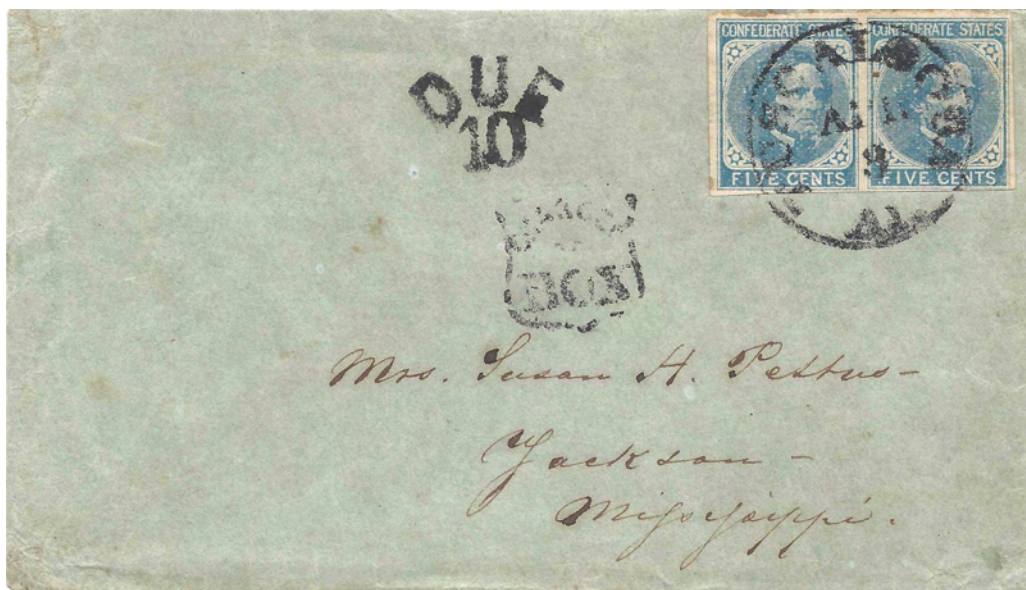 CONFEDERATE STATES CONFEDERATE STATES
FIVE CENTS FIVE CENTS
DUE
10
BOX
Mrs. Susan H. Pettus-
Jackson-
Mississippi.